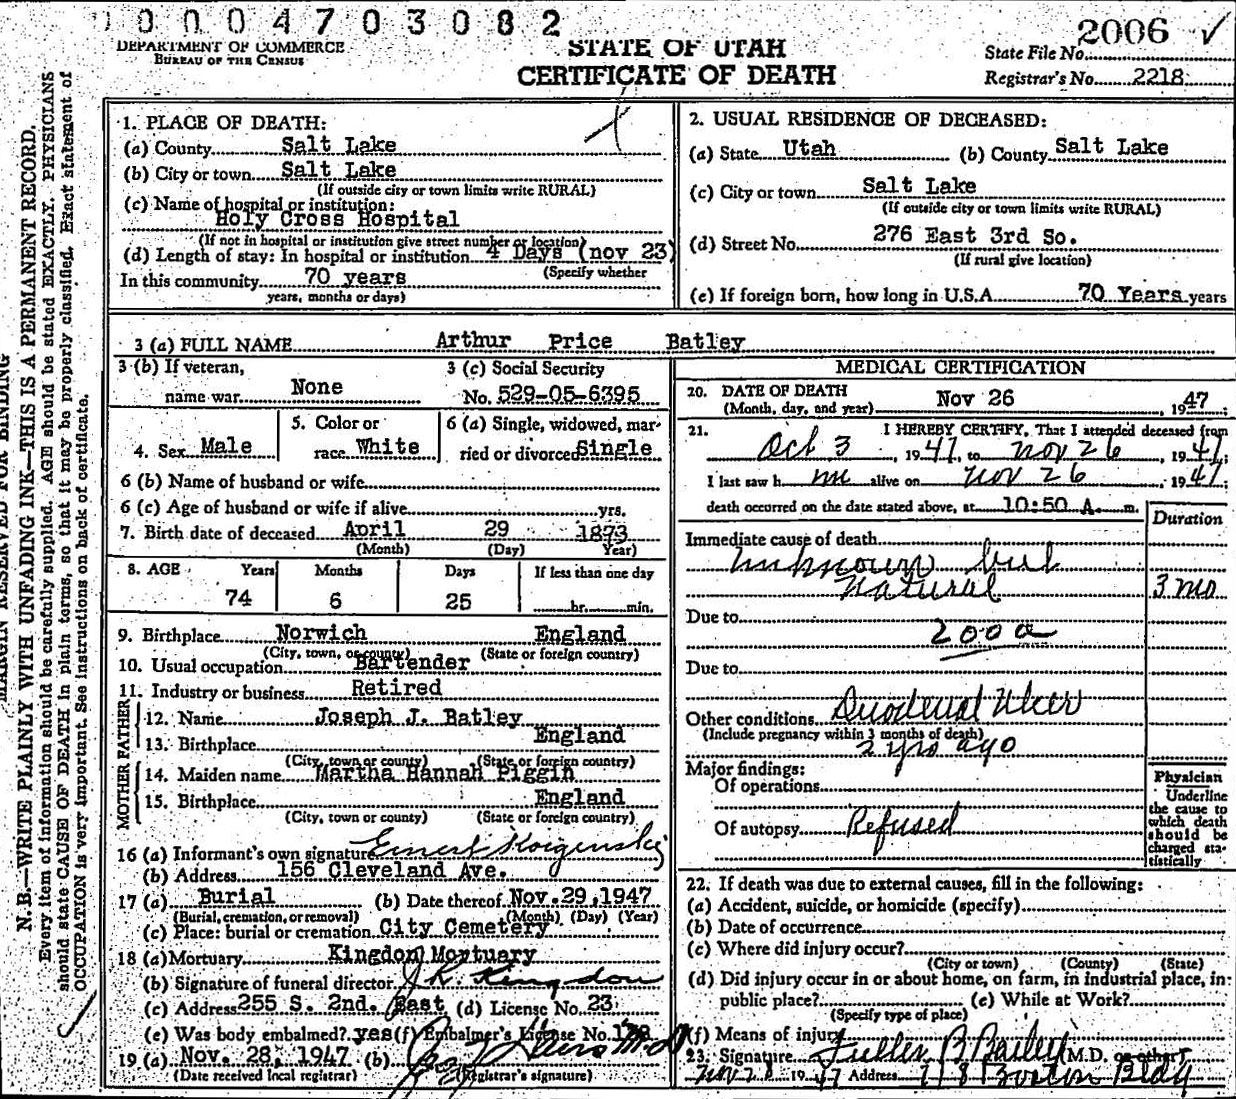 0004703082
DEPARTMENT OF COMMERCE
BUREAU OF THE CENSUS
STATE OF UTAH
CERTIFICATE OF DEATH
2006 ✓
State File No.
Registrar's No. 2218
MARGIN RESERVED FOR BINDING
N.B.—WRITE PLAINLY WITH UNFADING INK—THIS IS A PERMANENT RECORD.
Every item of information should be carefully supplied. AGE should be stated EXACTLY. PHYSICIANS
should state CAUSE OF DEATH in plain terms, so that it may be properly classified. Exact statement of
OCCUPATION is very important. See instructions on back of certificate.
1. PLACE OF DEATH:
(a) County Salt Lake
(b) City or town Salt Lake
(If outside city or town limits write RURAL)
(c) Name of hospital or institution:
Holy Cross Hospital
(If not in hospital or institution give street number or location)
(d) Length of stay: In hospital or institution 4 Days (nov 23)
(Specify whether
In this community 70 years
years, months or days)
2. USUAL RESIDENCE OF DECEASED:
(a) State Utah (b) County Salt Lake
(c) City or town Salt Lake
(If outside city or town limits write RURAL)
(d) Street No. 276 East 3rd So.
(If rural give location)
(e) If foreign born, how long in U.S.A. 70 Years years
3 (a) FULL NAME Arthur Price Batley
3 (b) If veteran,
name war None
3 (c) Social Security
No. 529-05-6395
4. Sex Male
5. Color or
race White
6 (a) Single, widowed, mar-
ried or divorced Single
6 (b) Name of husband or wife
6 (c) Age of husband or wife if alive yrs.
7. Birth date of deceased April 29 1873
(Month) (Day) Year)
8. AGE Years Months Days If less than one day
74 6 25 hr. min.
9. Birthplace Norwich England
(City, town, or county) (State or foreign country)
10. Usual occupation Bartender
11. Industry or business Retired
FATHER
12. Name Joseph J. Batley
13. Birthplace England
(City, town or county) (State or foreign country)
MOTHER
14. Maiden name Martha Hannah Piggin
15. Birthplace England
(City, town or county) (State or foreign country)
16 (a) Informant's own signature Ernest
(b) Address 156 Cleveland Ave.
17 (a) Burial (b) Date thereof Nov. 29, 1947
(Burial, cremation, or removal) (Month) (Day) (Year)
(c) Place: burial or cremation City Cemetery
18 (a) Mortuary Kingdon Mortuary
(b) Signature of funeral director J R Kingdon
(c) Address 255 S. 2nd. East (d) License No. 23
(e) Was body embalmed? yes (f) Embalmer's License No.
19 (a) Nov. 28, 1947 (b)
(Date received local registrar) (Registrar's signature)
MEDICAL CERTIFICATION
20. DATE OF DEATH
(Month, day, and year) Nov 26, 1947;
21. I HEREBY CERTIFY, That I attended deceased from
Oct 3, 1947, to Nov 26, 1947;
I last saw h m alive on Nov 26, 1947;
death occurred on the date stated above, at 10:50 A. m.
Duration
Immediate cause of death
unknown but
natural 3 mo
Due to
200a
Due to
Other conditions Duodenal Ulcer
(Include pregnancy within 3 months of death)
2 yrs ago
Major findings:
Of operations
Of autopsy Refused
Physician
Underline
the cause to
which death
should be
charged sta-
tistically
22. If death was due to external causes, fill in the following:
(a) Accident, suicide, or homicide (specify)
(b) Date of occurrence
(c) Where did injury occur?
(City or town) (County) (State)
(d) Did injury occur in or about home, on farm, in industrial place, in
public place? (e) While at Work?
(Specify type of place)
(f) Means of injury
23. Signature Fuller B Bailey M.D. or other
Nov 28 1947 Address 718 Boston Bldg